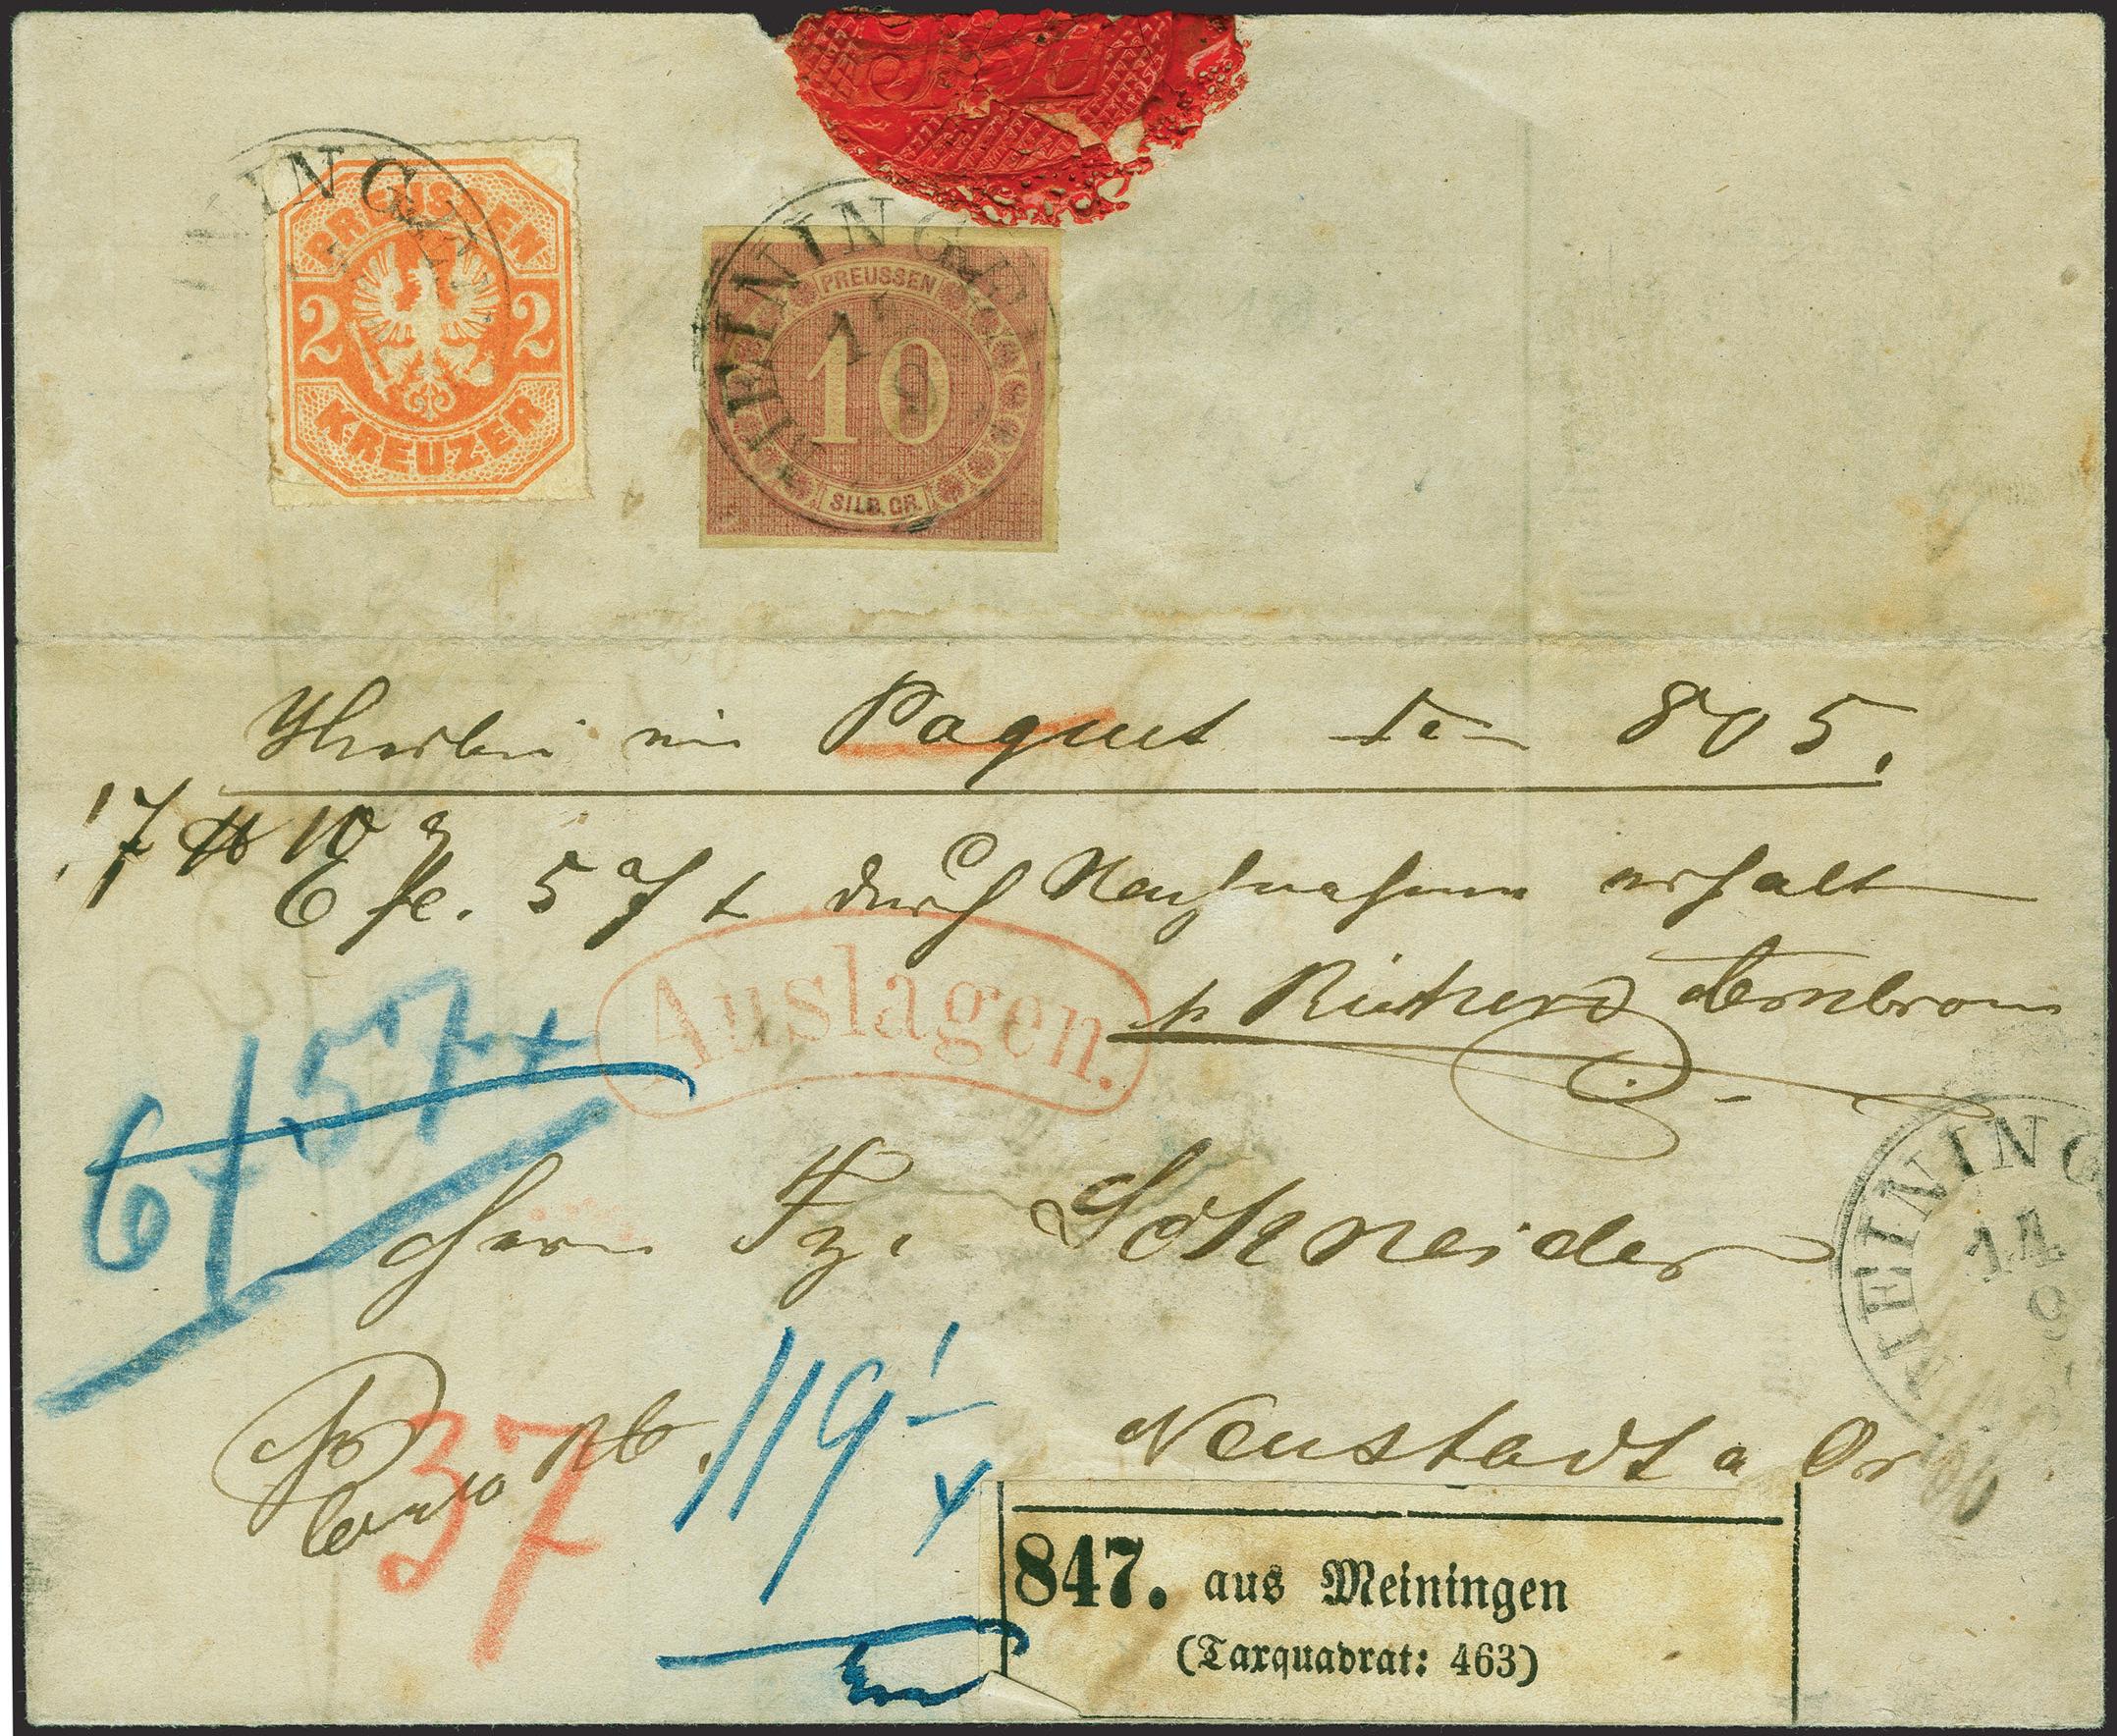 MEININGEN
PREUSSEN
2 2
KREUZER
MEININGEN
PREUSSEN
10
SILB. GR.
Paquet 805.
17 ℔ 10
6 fl. 57 x durch Nachnahme erhalt
Auslagen.
6f 57 x
Herrn Fz. Schneider
MEININGEN
14
9
37
119
Neustadt a Or
847. aus Meiningen
(Taxquadrat: 463)